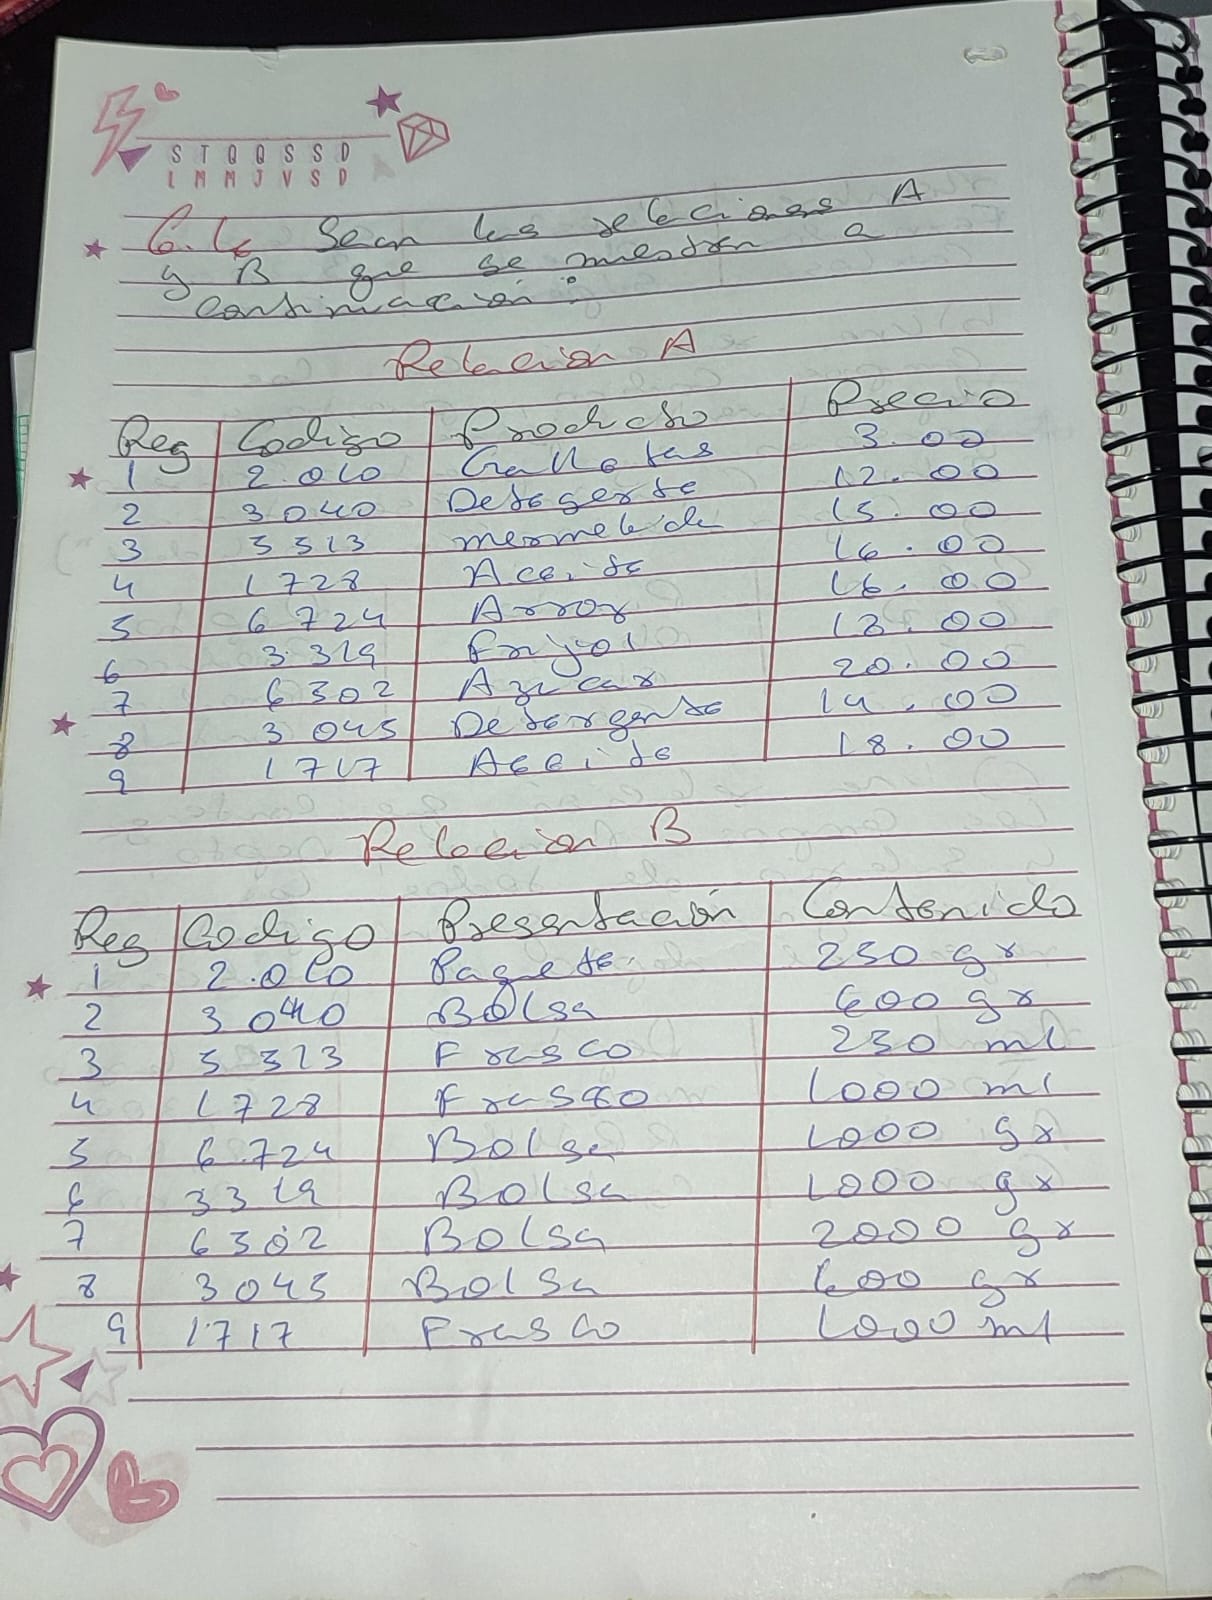 S T Q Q S S D
L M M J V S D
6.6 Sean las relaciones A
y B que se muestran a
continuación:
Relacion A
Reg Codigo Producto Precio
1 2.010 Galletas 3.00
2 3040 Detegerte 12.00
3 5313 mermelada 15.00
4 1728 Aceite 16.00
5 6724 Arroz 16.00
6 3.319 Frijol 13.00
7 6302 Azucar 20.00
8 3045 Detergente 14.00
9 1717 Aceite 18.00
Relacion B
Reg Codigo Presentación Contenido
1 2.010 Paquete. 250 gr
2 3040 Bolsa 600 gr
3 5313 Frasco 250 ml
4 1728 Frasco 1000 ml
5 6.724 Bolsa 1000 gr
6 3319 Bolsa 1000 gr
7 6302 Bolsa 2000 gr
8 3045 Bolsa 600 gr
9 1717 Frasco 1000 ml